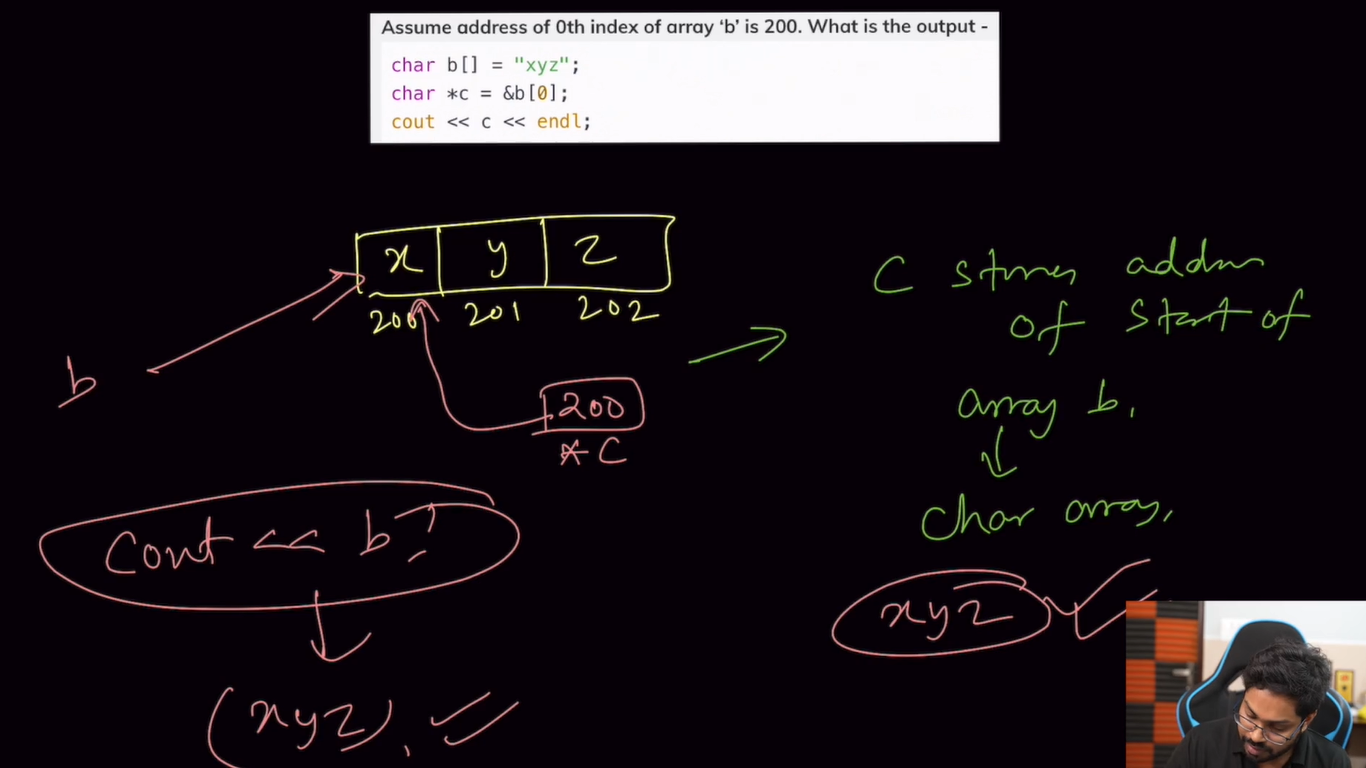 Assume address of 0th index of array ‘b’ is 200. What is the output -
char b[] = "xyz";
char *c = &b[0];
cout << c << endl;
x y z
200 201 202
b
200
*C
C stores address
of start of
array b,
char array,
Cout << b?
xyz
(xyz),